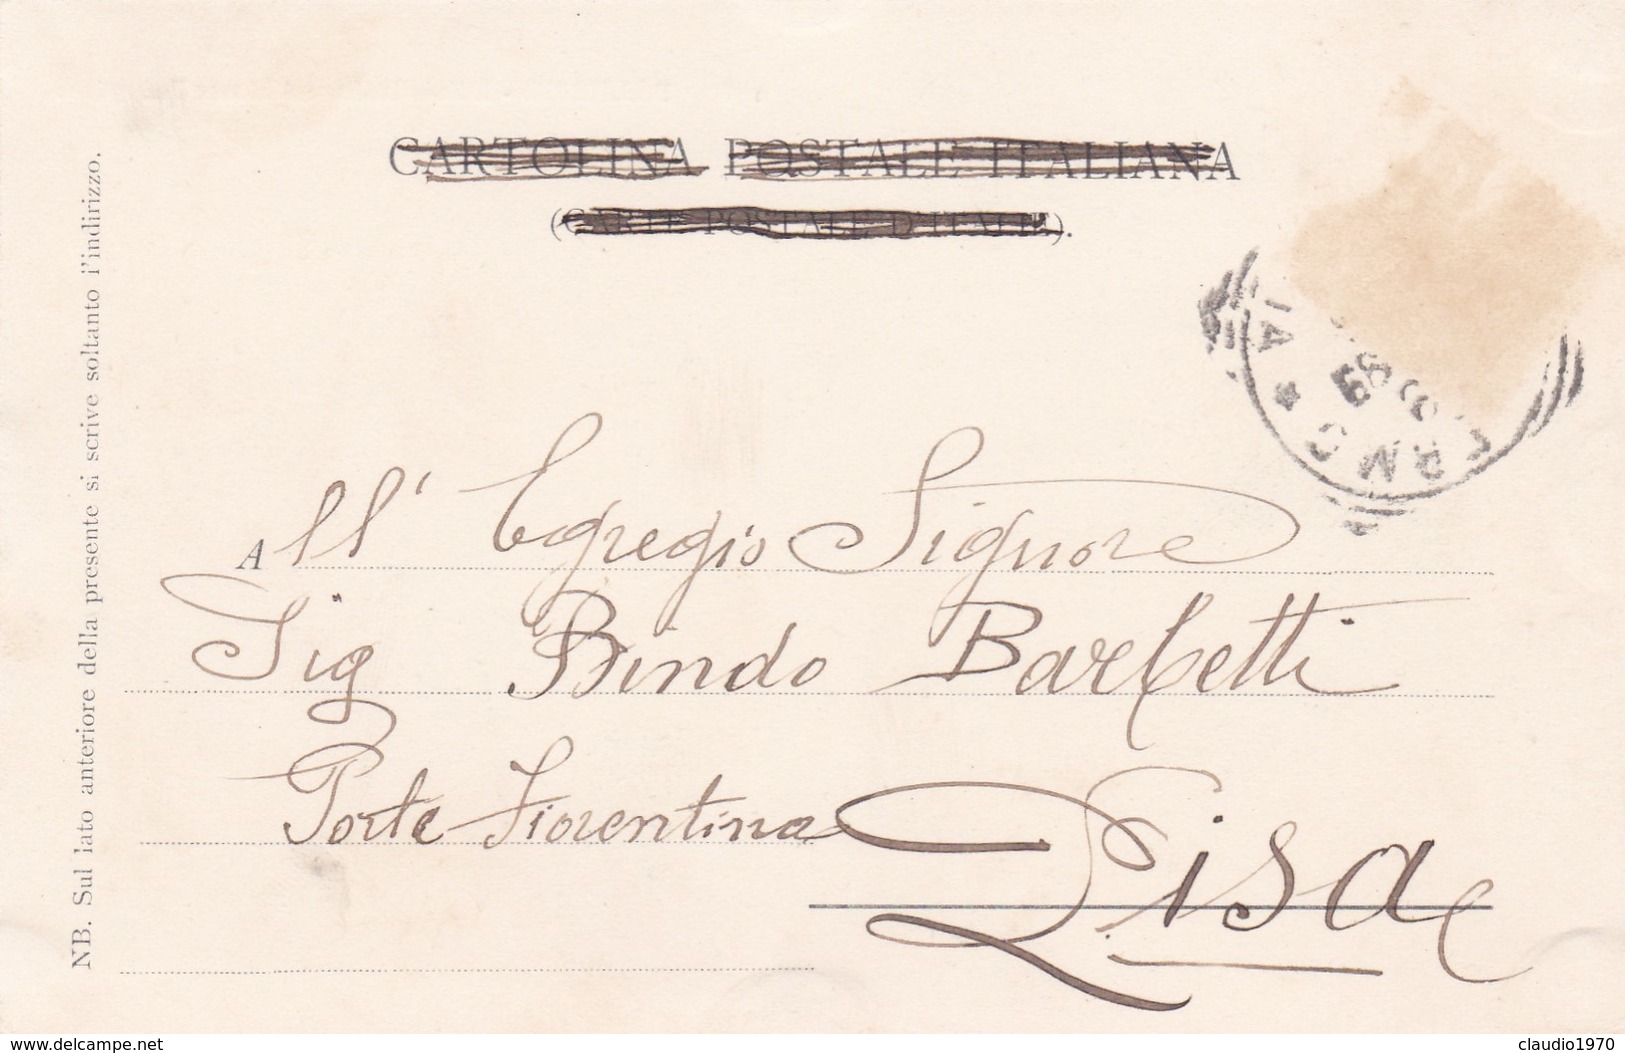 CARTOLINA POSTALE ITALIANA
(CARTE POSTALE D'ITALIE).
NB. Sul lato anteriore della presente si scrive soltanto l'indirizzo.
All' Egregio Signore
Sig Bindo Barbetti
Porte Fiorentina
Pisa
www.delcampe.net
claudio1970